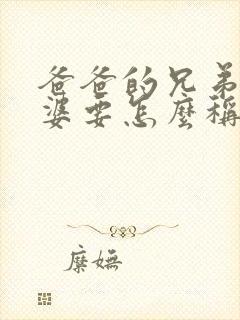 爸爸的兄弟
婆要怎麼稱
糜嫵